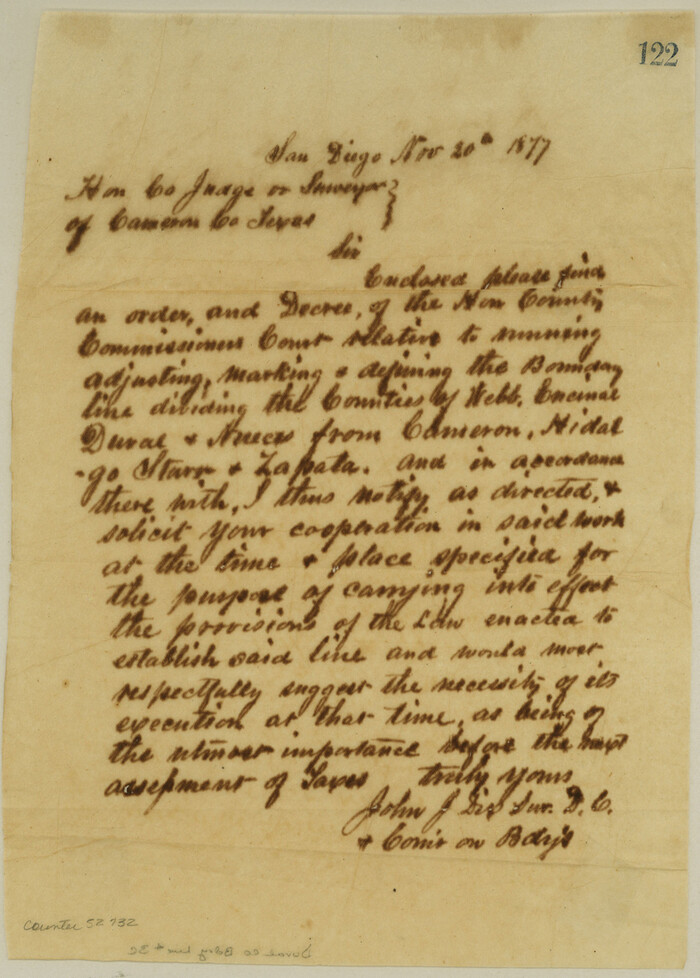 122
San Diego Nov 20th 1877
Hon Co Judge or Surveyor
of Cameron Co Texas
Sir
Enclosed please find
an order, and Decree, of the Hon County
Commissioners Court relative to running
adjusting, marking & defining the Boundary
line dividing the Counties of Webb, Encinal
Duval & Nueces from Cameron, Hidal
-go Starr & Zapata. and in accordance
there with, I thus notify as directed, &
solicit your cooperation in said work
at the time & place specified for
the purpose of carrying into effect
the provisions of the Law enacted to
establish said line and would most
respectfully suggest the necessity of its
execution at that time, as being of
the utmost importance before the next
assessment of Taxes truly yours
John J Dix Sur. D. C.
& Comr on Bdys
Counter 52732
Duval Co Bdry